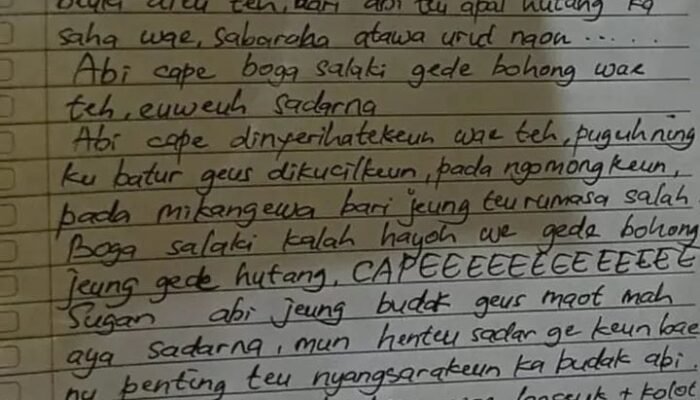 teh, dari abi teu apal hutang ka
saha wae, sabaraha atawa urut naon ......
Abi cape boga salaki gede bohong wae
teh, euweuh sadarna
Abi cape dinyerihatekeun wae teh, puguhning
ku batur geus dikucilkeun, pada ngomongkeun,
pada mikangewa bari jeung teu rumasa salah.
Boga salaki kalah hayoh we gede bohong
jeung gede hutang, CAPEEEEEEEEEEEEEE
Sugan abi jeung budak geus maot mah
aya sadarna, mun henteu sadar ge keun bae
nu penting teu nyangsarakeun ka budak abi.
+ kolot